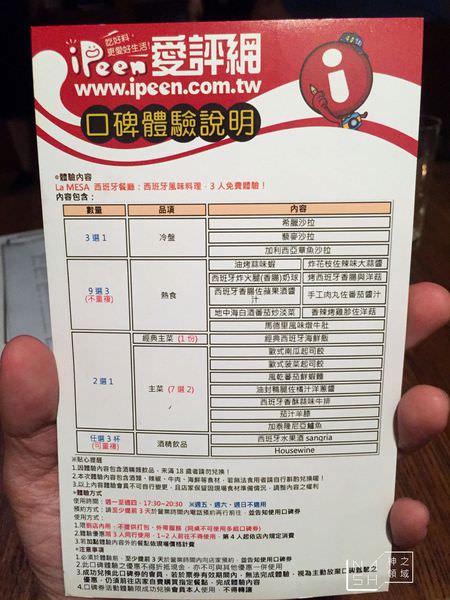 吃好料
更愛好生活!
iPeen 愛評網
www.ipeen.com.tw
口碑體驗說明
※體驗內容
La MESA 西班牙餐廳：西班牙風味料理，3 人免費體驗！
內容包含：
數量 品項 內容
3 選 1 冷盤 希臘沙拉
藜麥沙拉
加利西亞章魚沙拉
9 選 3 (不重複) 熱食 油烤蒜味蝦 炸花枝佐辣味大蒜醬
西班牙炸火腿(香腸)奶球 烤西班牙香腸與洋菇
西班牙香腸佐蘋果酒醬汁 手工肉丸佐番茄醬汁
地中海白酒番茄炒淡菜 香辣烤雞胗佐洋菇
馬德里風味燉牛肚
2 選 1 經典主菜 (1 份) 經典西班牙海鮮飯
主菜 (7 選 2) 歐式南瓜起司餃
歐式菠菜起司餃
風乾蕃茄鮮蝦麵
油封鴨腿佐橘汁洋蔥醬
西班牙香酥蒜味牛排
茄汁羊膝
加泰隆尼亞鱸魚
任選 3 杯 (可重複) 酒精飲品 西班牙水果酒 sangria
Housewine
※貼心提醒
1.因體驗內容包含酒精類飲品，未滿 18 歲者請勿兌換！
2.本次體驗內容包含酒類、辣椒、牛肉、海鮮等食材，若無法食用者請自行斟酌兌換喔！
3.以上內容體驗會員不可自行變更，且店家保留因現場食材準備備況，調整內容之權利
※體驗方式
使用時間：週一至週四，17:30~20:30 ※週五、週六、週日不適用
預約方式：請至少體驗前 3 天於營業時間內電話預約再行前往，並告知使用口碑券
使用方式：
1.限到店內用，不提供打包、外帶服務 (同桌不可使用多組口碑券)
2.體驗優惠限 3 人同行使用，1~2 人前往不得使用，第 4 人起依店內規定消費
3.若加點體驗內容外的餐點依現場價格計費
※注意事項
1.必須於體驗前，至少體驗前 3 天於營業時間內向店家預約，並告知使用口碑券
2.此口碑體驗之優惠不得折抵現金，亦不可與其他優惠一併使用
3.成功兌換此口碑券的會員，若於票券有效期間內，無法完成體驗，視為主動放棄口碑體驗之
優惠，仍須前往店家自費購買指定餐點，完成體驗。
4.口碑券活動體驗限成功兌換會員本人使用，不得轉讓
INSH 神之領域